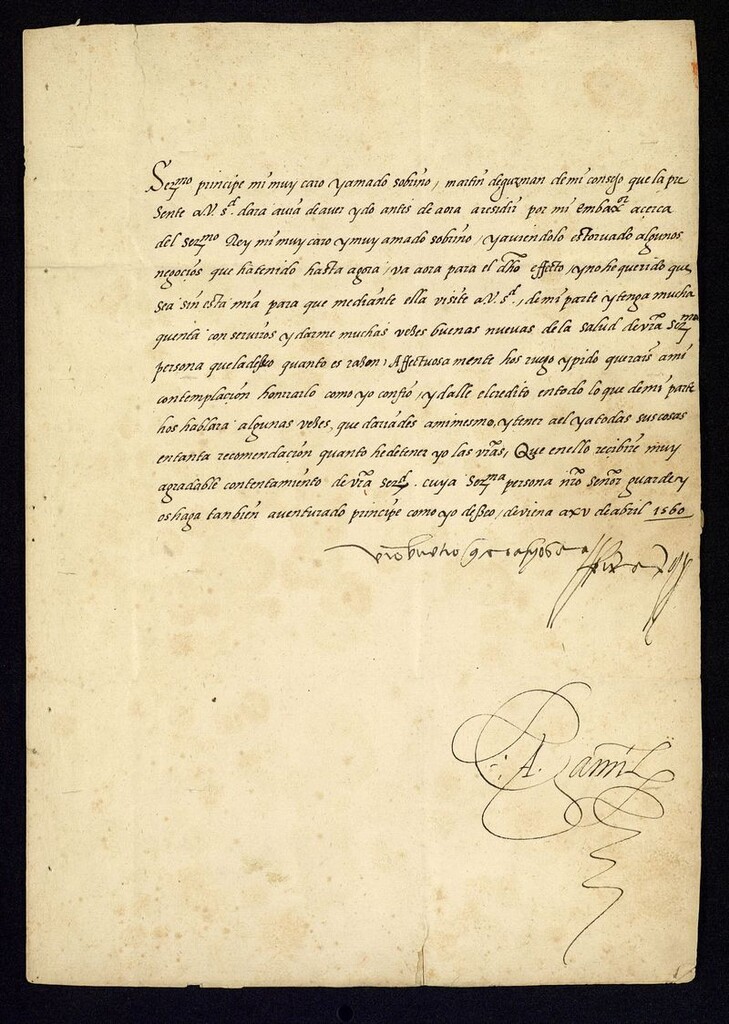 Ser.mo principe mi muy caro y amado sobrino, martin deguzman demi consejo que la pre
sente a V. s.d dara auia de auer ydo antes de aora a residir por mi Embax.or acerca
del ser.mo Rey mi muy caro y muy amado sobrino, y auiendolo estoruado algunos
negocios que ha tenido hasta agora, va aora para el dho effetto, y no he querido que
sea sin esta mia para que mediante ella visite a V. s.d, de mi parte y tenga mucha
quenta con seruiros y darme muchas vezes buenas nueuas de la salud de vra ser.ma
persona que la desseo quanto es razon, Affettuosamente hos ruego y pido querais a mi
contemplacion honrrarlo como yo confio, y dalle el credito en todo lo que de mi parte
hos hablara algunas vezes, que dariades a mi mesmo, y tener a el y a todas sus cosas
en tanta recomendacion quanto he de tener yo las vras, Que en ello recibire muy
agradable contentamiento de vra ser.d. cuya ser.ma persona nro señor guarde y
os haga tan bien auenturado principe como yo desseo, de viena a xv de abril 1560